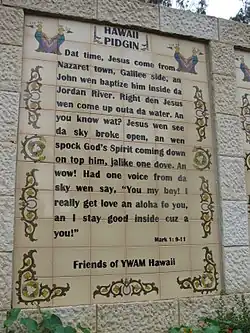 HAWAII
PIDGIN
Dat time, Jesus come from
Nazaret town, Galilee side, an
John wen baptize him inside da
Jordan River. Right den Jesus
wen come up outa da water. An
you know wat? Jesus wen see
da sky broke open, an wen
spock God's Spirit coming down
on top him, jalike one dove. An
wow! Had one voice from da
sky wen say, "You my boy! I
really get love an aloha fo you,
an I stay good inside cuz a
you!"
Mark 1: 9-11
Friends of YWAM Hawaii